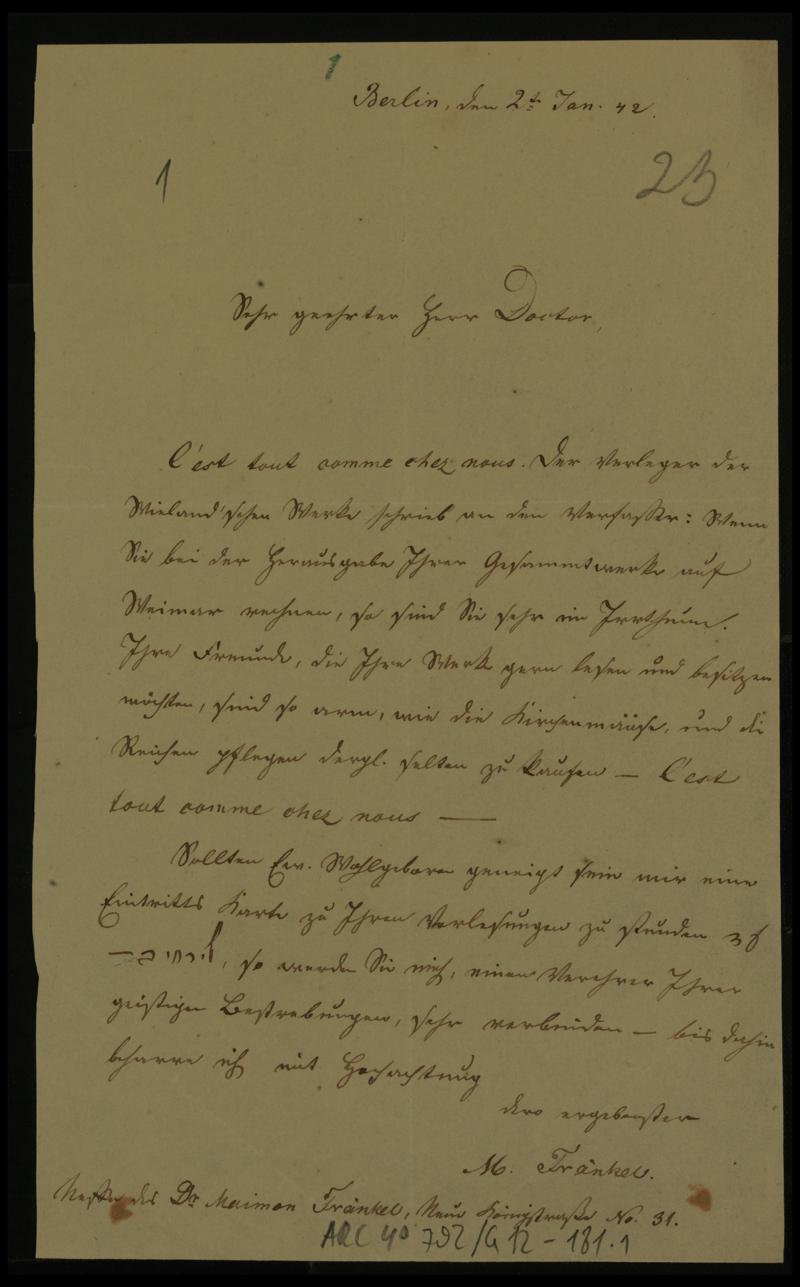 1
Berlin, den 2t Jan. 42.
1
25
Sehr geehrter Herr Doctor,
C'est tout comme chez nous. Der Verleger der
Wieland'schen Werke schrieb an den Verfasser: Wenn
Sie bei der Herausgabe Ihrer Gesammtwerke auf
Weimar rechnen, so sind Sie sehr im Irrthum.
Ihre Freunde, die Ihre Werke gern lesen und besitzen
möchten, sind so arm, wie die Kirchenmäuse, und die
Reichen pflegen dergl. selten zu kaufen — C'est
tout comme chez nous —
Sollten Ew. Wohlgeboren geneigt sein mir eine
Eintritts Karte zu Ihren Vorlesungen zu stunden
, so werden Sie mich, einen Verehrer Ihrer
geistigen Bestrebungen, sehr verbinden — bis dahin
beharre ich mit Hochachtung
dero ergebenster
M. Fränkel.
Neffe des Dr Maimon Fränkel, Neue Königstraße No. 31.
ARC 4° 792/G12-131.1